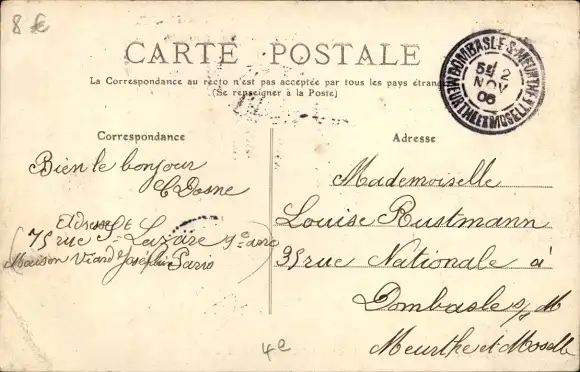 8 €
CARTE POSTALE
La Correspondance au recto n'est pas acceptée par tous les pays étrangers
(Se renseigner à la Poste)
DOMBASLE-S-MEURTHE
MEURTHE ET MOSELLE
5E 2
NOV
06
Correspondance
Bien le bonjour
C Dosne
Adresse
75 rue St Lazare 9e arre
(Maison Viard Joséphin Paris)
Adresse
Mademoiselle
Louise Rustmann
35 rue Nationale à
Dombasle s/ M
Meurthe et Moselle
4e